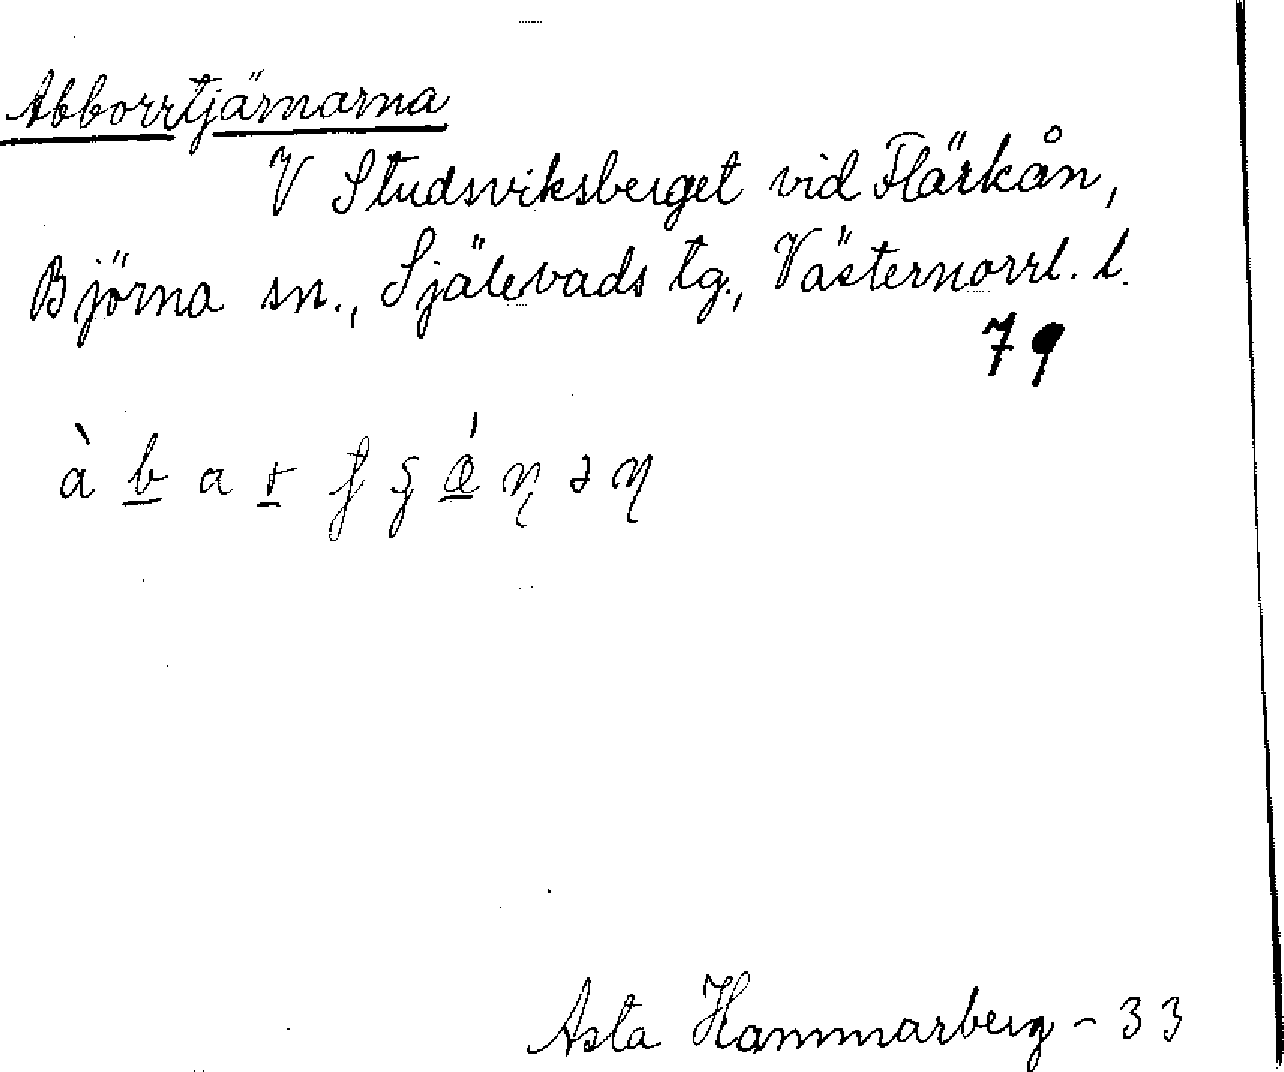 Abborrtjärnarna
V Studsviksberget vid Flärkån,
Björna sn., Själevads tg., Västernorrl. l.
79
à b a r
Asta Hammarberg - 33